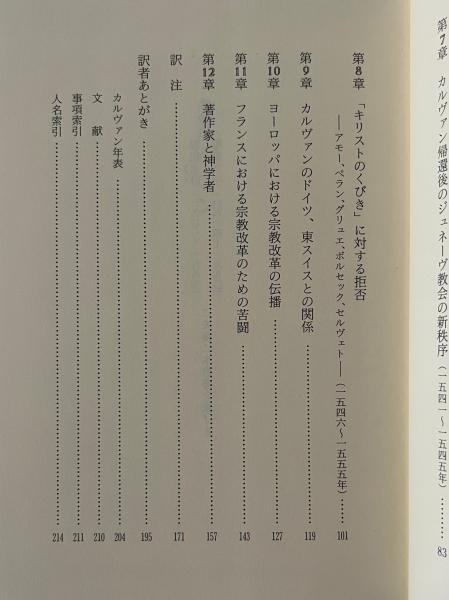 第7章　カルヴァン帰還後のジュネーヴ教会の新秩序（一五四一〜一五四五年）………83
第8章　「キリストのくびき」に対する拒否
――アモー、ペラン、グリュエ、ボルセック、セルヴェト――（一五四六〜一五五五年）……101
第9章　カルヴァンのドイツ、東スイスとの関係……119
第10章　ヨーロッパにおける宗教改革の伝播……127
第11章　フランスにおける宗教改革のための苦闘……143
第12章　著作家と神学者……157
訳　注……171
訳者あとがき……195
カルヴァン年表……204
文　献……210
事項索引……211
人名索引……214